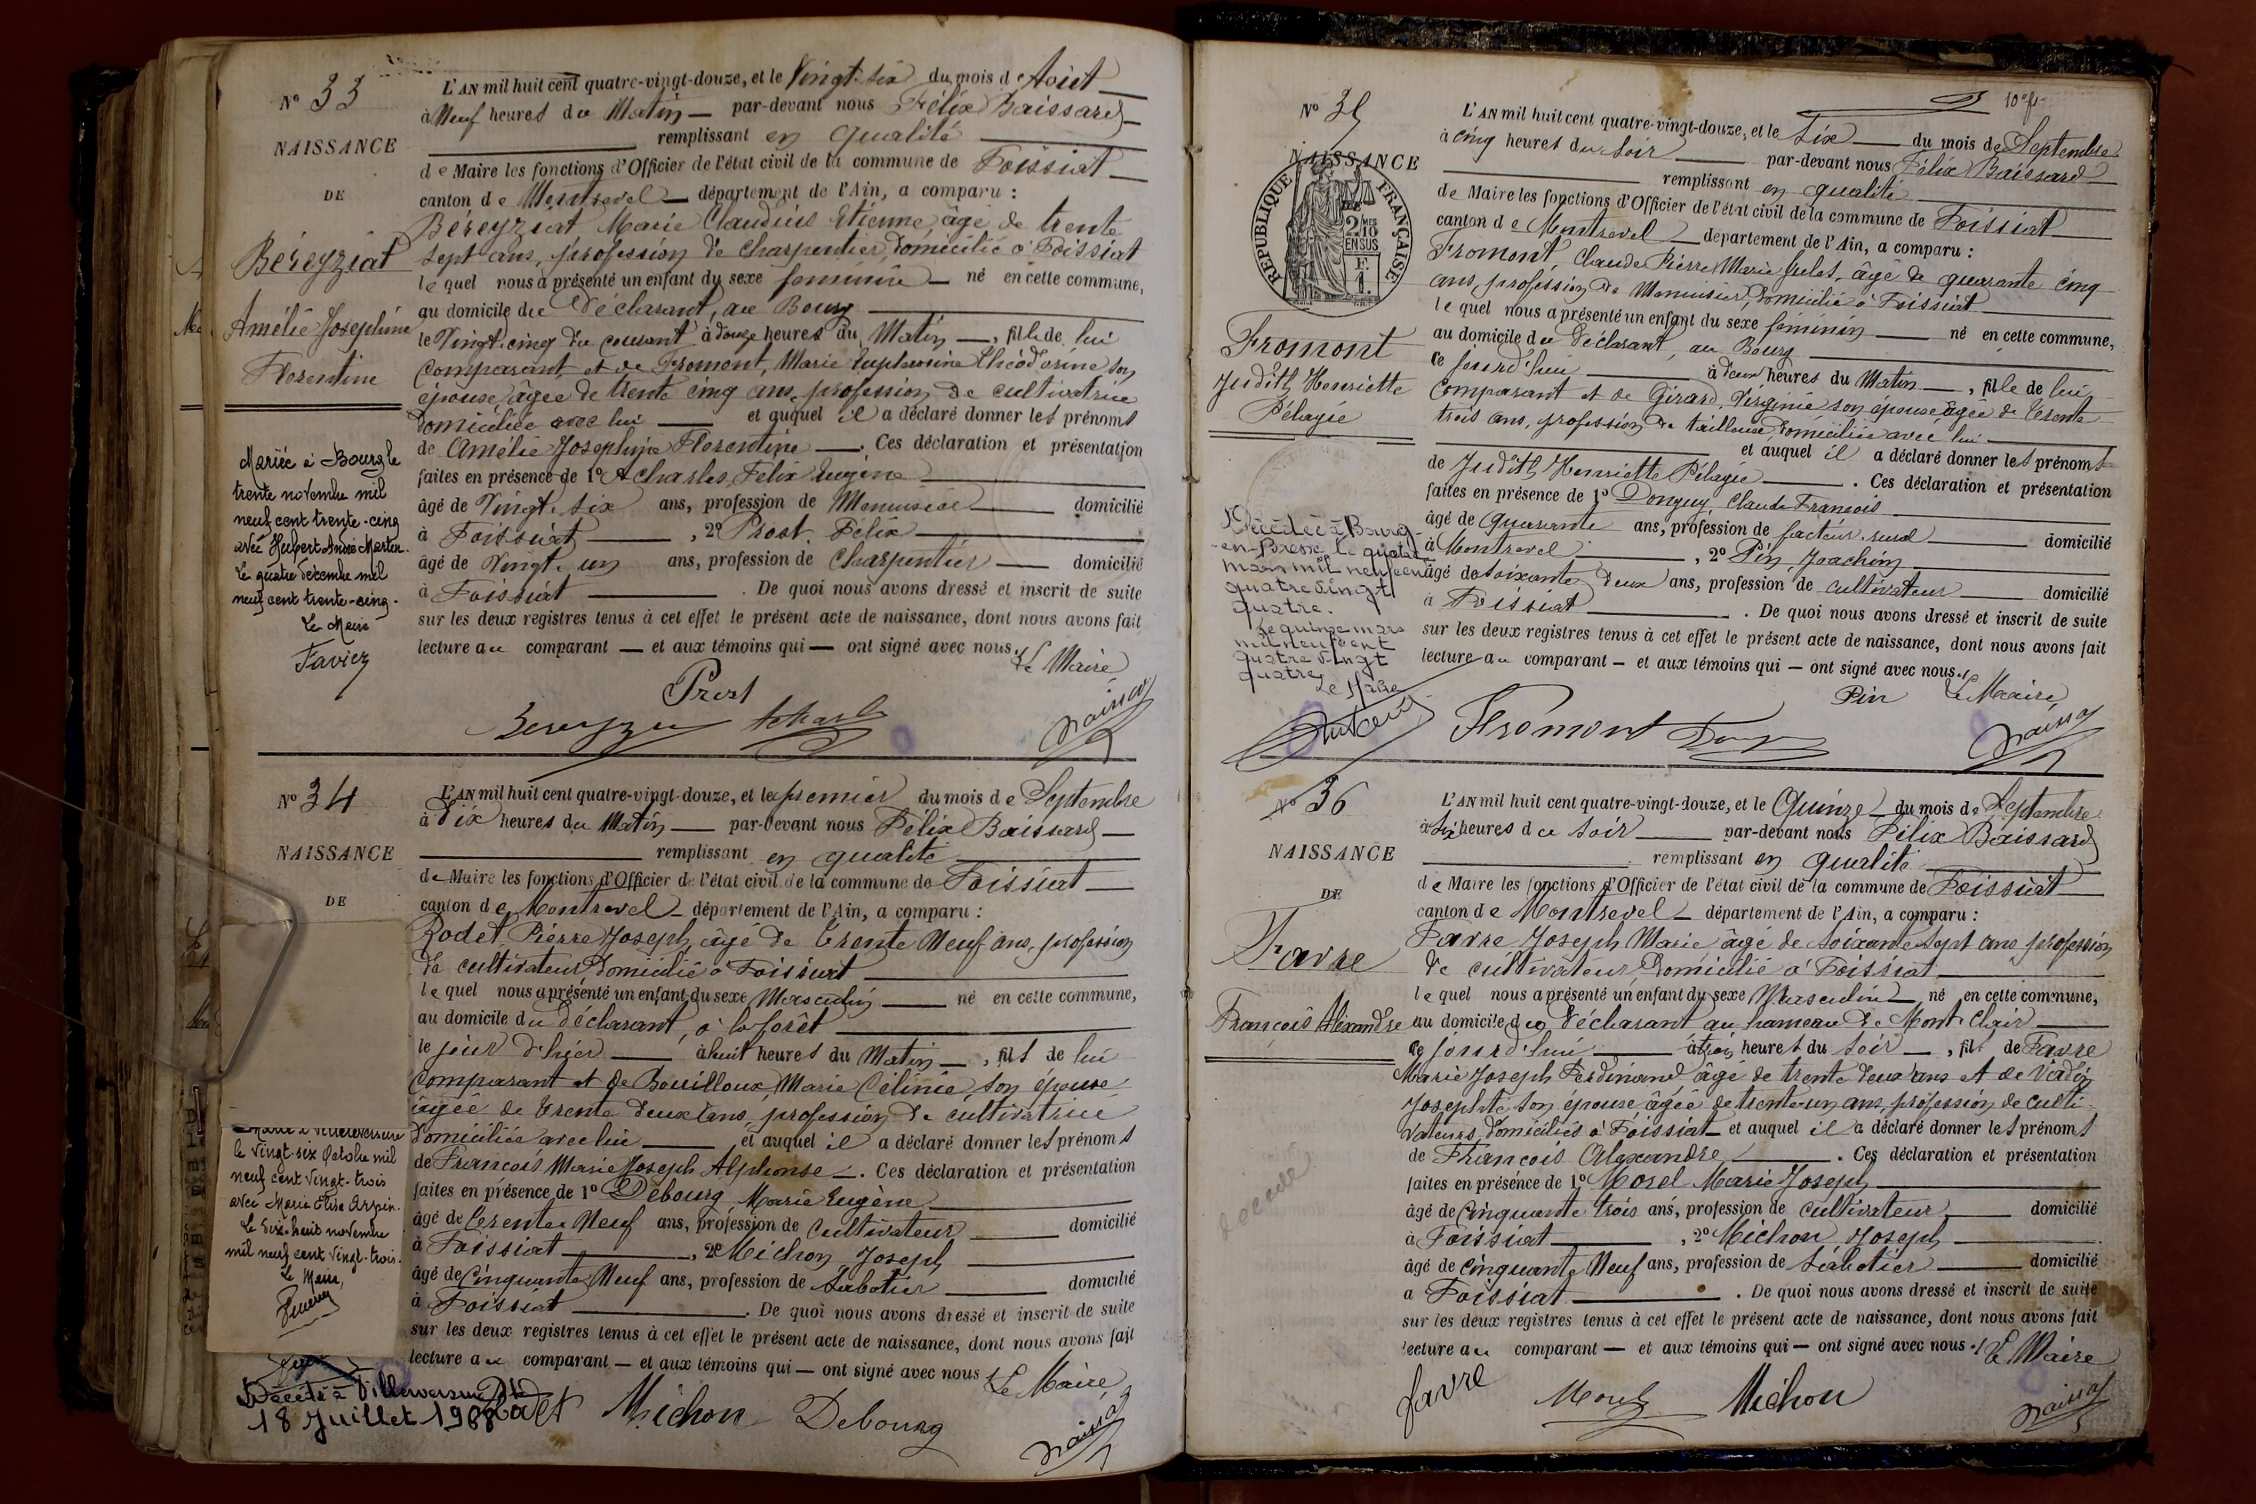 N° 33
NAISSANCE
DE
Béreyziat
Amélie Joséphine
Florentine
Mariée à Bourg le
trente novembre mil
neuf cent trente-cinq
avec Hubert André Martin.
Le quatre décembre mil
neuf cent trente-cinq.
Le Maire
L'AN mil huit cent quatre-vingt-douze, et le Vingt-six du mois d'Août
à Neuf heures du Matin par-devant nous Félix Baissard
remplissant en qualité
de Maire les fonctions d'Officier de l'état civil de la commune de Foissiat
canton de Montrevel département de l'Ain, a comparu :
Béreyziat Marie Claudius Etienne âgé de trente
sept ans, profession de Charpentier, domicilié à Foissiat
lequel nous a présenté un enfant du sexe féminin né en cette commune,
au domicile du Déclarant, au Bourg
le Vingt-cinq du courant à douze heures du Matin, fille de lui
Comparant et de Fromont, Marie Euphrosine Théodorine son
épouse, âgée de trente cinq ans, profession de cultivatrice
domiciliée avec lui et auquel il a déclaré donner les prénoms
de Amélie Joséphine Florentine. Ces déclaration et présentation
faites en présence de 1° Acharles, Félix Eugène
âgé de Vingt-six ans, profession de Menuisier domicilié
à Foissiat, 2° Prost, Félix
âgé de Vingt-un ans, profession de Charpentier domicilié
à Foissiat. De quoi nous avons dressé et inscrit de suite
sur les deux registres tenus à cet effet le présent acte de naissance, dont nous avons fait
lecture au comparant et aux témoins qui ont signé avec nous
Le Maire
Prost
N° 34
NAISSANCE
DE
le vingt-six Octobre mil
neuf cent vingt-trois
avec Maria Elisa Arpin.
Le dix-huit novembre
mil neuf cent vingt-trois.
Le Maire,
Décédé à Villereversure
18 Juillet 1968
L'AN mil huit cent quatre-vingt-douze, et le premier du mois de Septembre
à Dix heures du Matin par-devant nous Félix Baissard
remplissant en qualité
de Maire les fonctions d'Officier de l'état civil de la commune de Foissiat
canton de Montrevel département de l'Ain, a comparu :
Rodet, Pierre Joseph, âgé de trente Neuf ans, profession
de cultivateur, domicilié à Foissiat
lequel nous a présenté un enfant du sexe Masculin né en cette commune,
au domicile du déclarant, à la forêt
le jour d'hier à huit heures du Matin, fils de lui
Comparant et de Bouilloux, Marie Célinie, son épouse
âgée de trente deux ans, profession de cultivatrice
domiciliée avec lui et auquel il a déclaré donner les prénoms
de François Marie Joseph Alphonse. Ces déclaration et présentation
faites en présence de 1° Debourg Marie Eugène
âgé de trente Neuf ans, profession de cultivateur domicilié
à Foissiat, 2° Michon Joseph
âgé de Cinquante Neuf ans, profession de Sabotier domicilié
à Foissiat. De quoi nous avons dressé et inscrit de suite
sur les deux registres tenus à cet effet le présent acte de naissance, dont nous avons fait
lecture au comparant et aux témoins qui ont signé avec nous
Le Maire
Rodet Michon Debourg
N° 35
NAISSANCE
RÉPUBLIQUE FRANÇAISE
2 MES 10 EN SUS
F. 1.
Fromont
Judith Henriette
Pélagie
Décédée à Bourg-
en-Bresse le quatre
mars mil neuf cent
quatre vingt
quatre.
Le quinze mars
mil neuf cent
quatre vingt
quatre
Le Maire
10e f.
L'AN mil huit cent quatre-vingt-douze, et le Six du mois de Septembre
à cinq heures du Soir par-devant nous Félix Baissard
remplissant en qualité
de Maire les fonctions d'Officier de l'état civil de la commune de Foissiat
canton de Montrevel département de l'Ain, a comparu :
Fromont, Claude Pierre Marie Jules, âgé de quarante cinq
ans, profession de Menuisier, domicilié à Foissiat
lequel nous a présenté un enfant du sexe féminin né en cette commune,
au domicile du Déclarant, au Bourg
ce jourd'hui à deux heures du Matin, fille de lui
Comparant et de Girard, Virginie son épouse âgée de trente
trois ans, profession de tailleuse, domiciliée avec lui
et auquel il a déclaré donner les prénoms
de Judith Henriette Pélagie. Ces déclaration et présentation
faites en présence de 1° Donguy, Claude François
âgé de Quarante ans, profession de facteur rural domicilié
à Montrevel, 2° Pin, Joachim
âgé de soixante deux ans, profession de cultivateur domicilié
à Foissiat. De quoi nous avons dressé et inscrit de suite
sur les deux registres tenus à cet effet le présent acte de naissance, dont nous avons fait
lecture au comparant et aux témoins qui ont signé avec nous
Pin Le Maire
Fromont
N° 36
NAISSANCE
DE
Favre
François Alexandre
décédé
L'AN mil huit cent quatre-vingt-douze, et le Quinze du mois de Septembre
à Six heures du Soir par-devant nous Félix Baissard
remplissant en qualité
de Maire les fonctions d'Officier de l'état civil de la commune de Foissiat
canton de Montrevel département de l'Ain, a comparu :
Favre Joseph Marie âgé de soixante sept ans profession
de cultivateur, domicilié à Foissiat
lequel nous a présenté un enfant du sexe Masculin né en cette commune,
au domicile du Déclarant au hameau de Mont-Clair
ce jourd'hui à trois heures du Soir, fils de Favre
Marie Joseph Ferdinand, âgé de trente deux ans et de Vordin
Josephte, son épouse âgée de trente-un ans, profession de culti-
vateurs, domiciliés à Foissiat et auquel il a déclaré donner les prénoms
de François Alexandre. Ces déclaration et présentation
faites en présence de 1° Morel Marie Joseph
âgé de Cinquante trois ans, profession de Cultivateur domicilié
à Foissiat, 2° Michon Joseph
âgé de Cinquante Neuf ans, profession de Sabotier domicilié
à Foissiat. De quoi nous avons dressé et inscrit de suite
sur les deux registres tenus à cet effet le présent acte de naissance, dont nous avons fait
lecture au comparant et aux témoins qui ont signé avec nous
Le Maire
favre Morel Michon